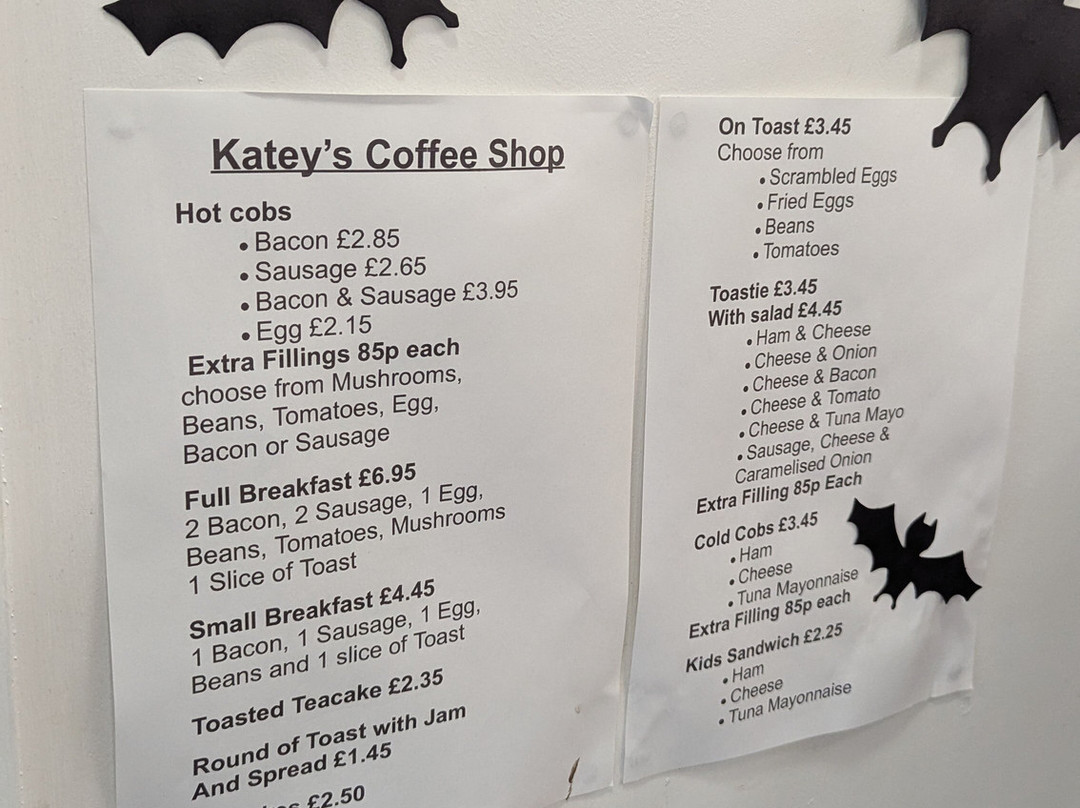 Katey's Coffee Shop
Hot cobs
• Bacon £2.85
• Sausage £2.65
• Bacon & Sausage £3.95
• Egg £2.15
Extra Fillings 85p each
choose from Mushrooms,
Beans, Tomatoes, Egg,
Bacon or Sausage
Full Breakfast £6.95
2 Bacon, 2 Sausage, 1 Egg,
Beans, Tomatoes, Mushrooms
1 Slice of Toast
Small Breakfast £4.45
1 Bacon, 1 Sausage, 1 Egg,
Beans and 1 slice of Toast
Toasted Teacake £2.35
Round of Toast with Jam
And Spread £1.45
£2.50
On Toast £3.45
Choose from
• Scrambled Eggs
• Fried Eggs
• Beans
• Tomatoes
Toastie £3.45
With salad £4.45
• Ham & Cheese
• Cheese & Onion
• Cheese & Bacon
• Cheese & Tomato
• Cheese & Tuna Mayo
• Sausage, Cheese &
Caramelised Onion
Extra Filling 85p Each
Cold Cobs £3.45
• Ham
• Cheese
• Tuna Mayonnaise
Extra Filling 85p each
Kids Sandwich £2.25
• Ham
• Cheese
• Tuna Mayonnaise